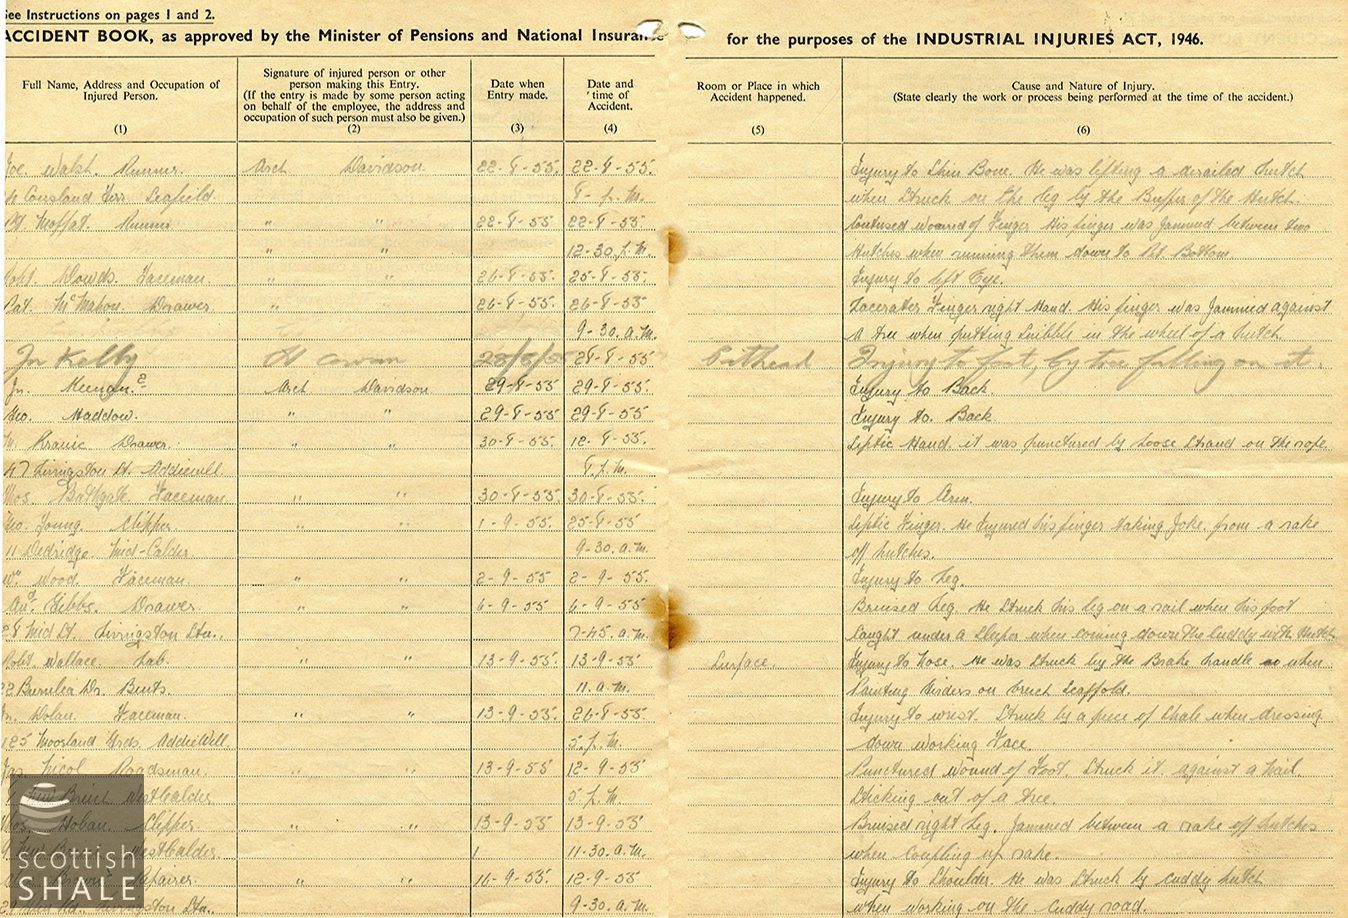 See Instructions on pages 1 and 2.
ACCIDENT BOOK, as approved by the Minister of Pensions and National Insurance for the purposes of the INDUSTRIAL INJURIES ACT, 1946.
Full Name, Address and Occupation of Injured Person. (1)
Signature of injured person or other person making this Entry. (If the entry is made by some person acting on behalf of the employee, the address and occupation of such person must also be given.) (2)
Date when Entry made. (3)
Date and time of Accident. (4)
Room or Place in which Accident happened. (5)
Cause and Nature of Injury. (State clearly the work or process being performed at the time of the accident.) (6)
Joe. Walsh. Runner. Arch Davidson 22-8-55 22-8-55. Injury to Shin Bone. He was lifting a derailed hutch
Cousland Terr. Seafield. 8- p.m. when Struck on the leg by the Buffer of the Hutch.
Pt Moffat. Runner " " 22-8-55 22-8-55. Contused Wound of Finger His finger was Jammed between two
" " 12-30 p.m. Hutches when running them down to Pit Bottom.
Robt. Dowds. Faceman. " " 26-8-55. 25-8-55. Injury to left Eye.
Pat. McMahon. Drawer. " " 26-8-55. 26-8-55. Lacerated Finger right Hand. His finger was Jammed against
9-30. a.m. A tree when putting Snibble in the wheel of a hutch.
Jn Kelly H Cowan 28/8/55 28-8-55 Pithead Injury to foot, by tree falling on it.
Jn. Meenan. Arch Davidson 29-8-55 29-8-55. Injury to Back.
Geo. Haddow. " " 29-8-55 29-8-55. Injury to. Back.
Drawer. " " 30-8-55. 12-8-55. Septic Hand. it was punctured by loose Strand on the rope.
47 Livingston St. Addiewell. 8. p.m.
Thos. Bathgate. Faceman. " " 30-8-55. 30-8-55. Injury to Arm.
Geo. Young. Clipper " " 1-9-55. 25-8-55 Septic Finger. He Injured his finger taking Joke. from a rake
11 Dedridge Mid-Calder 9-30. a.m. off hutches.
Wm Wood. Faceman. " " 2-9-55 2-9-55. Injury to Leg.
And. Gibbs. Drawer. " " 6-9-55 6-9-55 Bruised Leg. He Struck his leg on a rail when his foot
28 Mid St. Livingston Stn., 7-45. a.m. Caught under a Sleeper when coming down the Cuddy with Hutch
Robt. Wallace. Lab. " " 13-9-55. 13-9-55 Surface. Injury to Nose. He was Struck by the Brake handle when
22 Burnlea Dr. Bents. 11. a.m. Painting Girders on trench Scaffold.
Jn. Dolan. Faceman. " " 13-9-55. 26-8-55. Injury to wrist. Struck by a piece of Shale when dressing
125 Moorland Grds. Addiewell. 5. p.m. down working Face.
Jas Nicol. Roadsman. " " 13-9-55. 12-9-55. Punctured wound of Foot. Struck it against a Nail
Breich Westcalder 5 p.m. Sticking out of a tree.
Thos. Hoban. Clipper " " 13-9-55 13-9-55 Bruised right Leg. Jammed between a rake off hutches
Westcalder. 11-30. a.m. when Coupling up rake.
Repairer " " 16-9-55. 12-9-55 Injury to Shoulder. He was Struck by cuddy hutch
Livingston Stn., 9-30. a.m. when working on the cuddy road.
scottish
SHALE